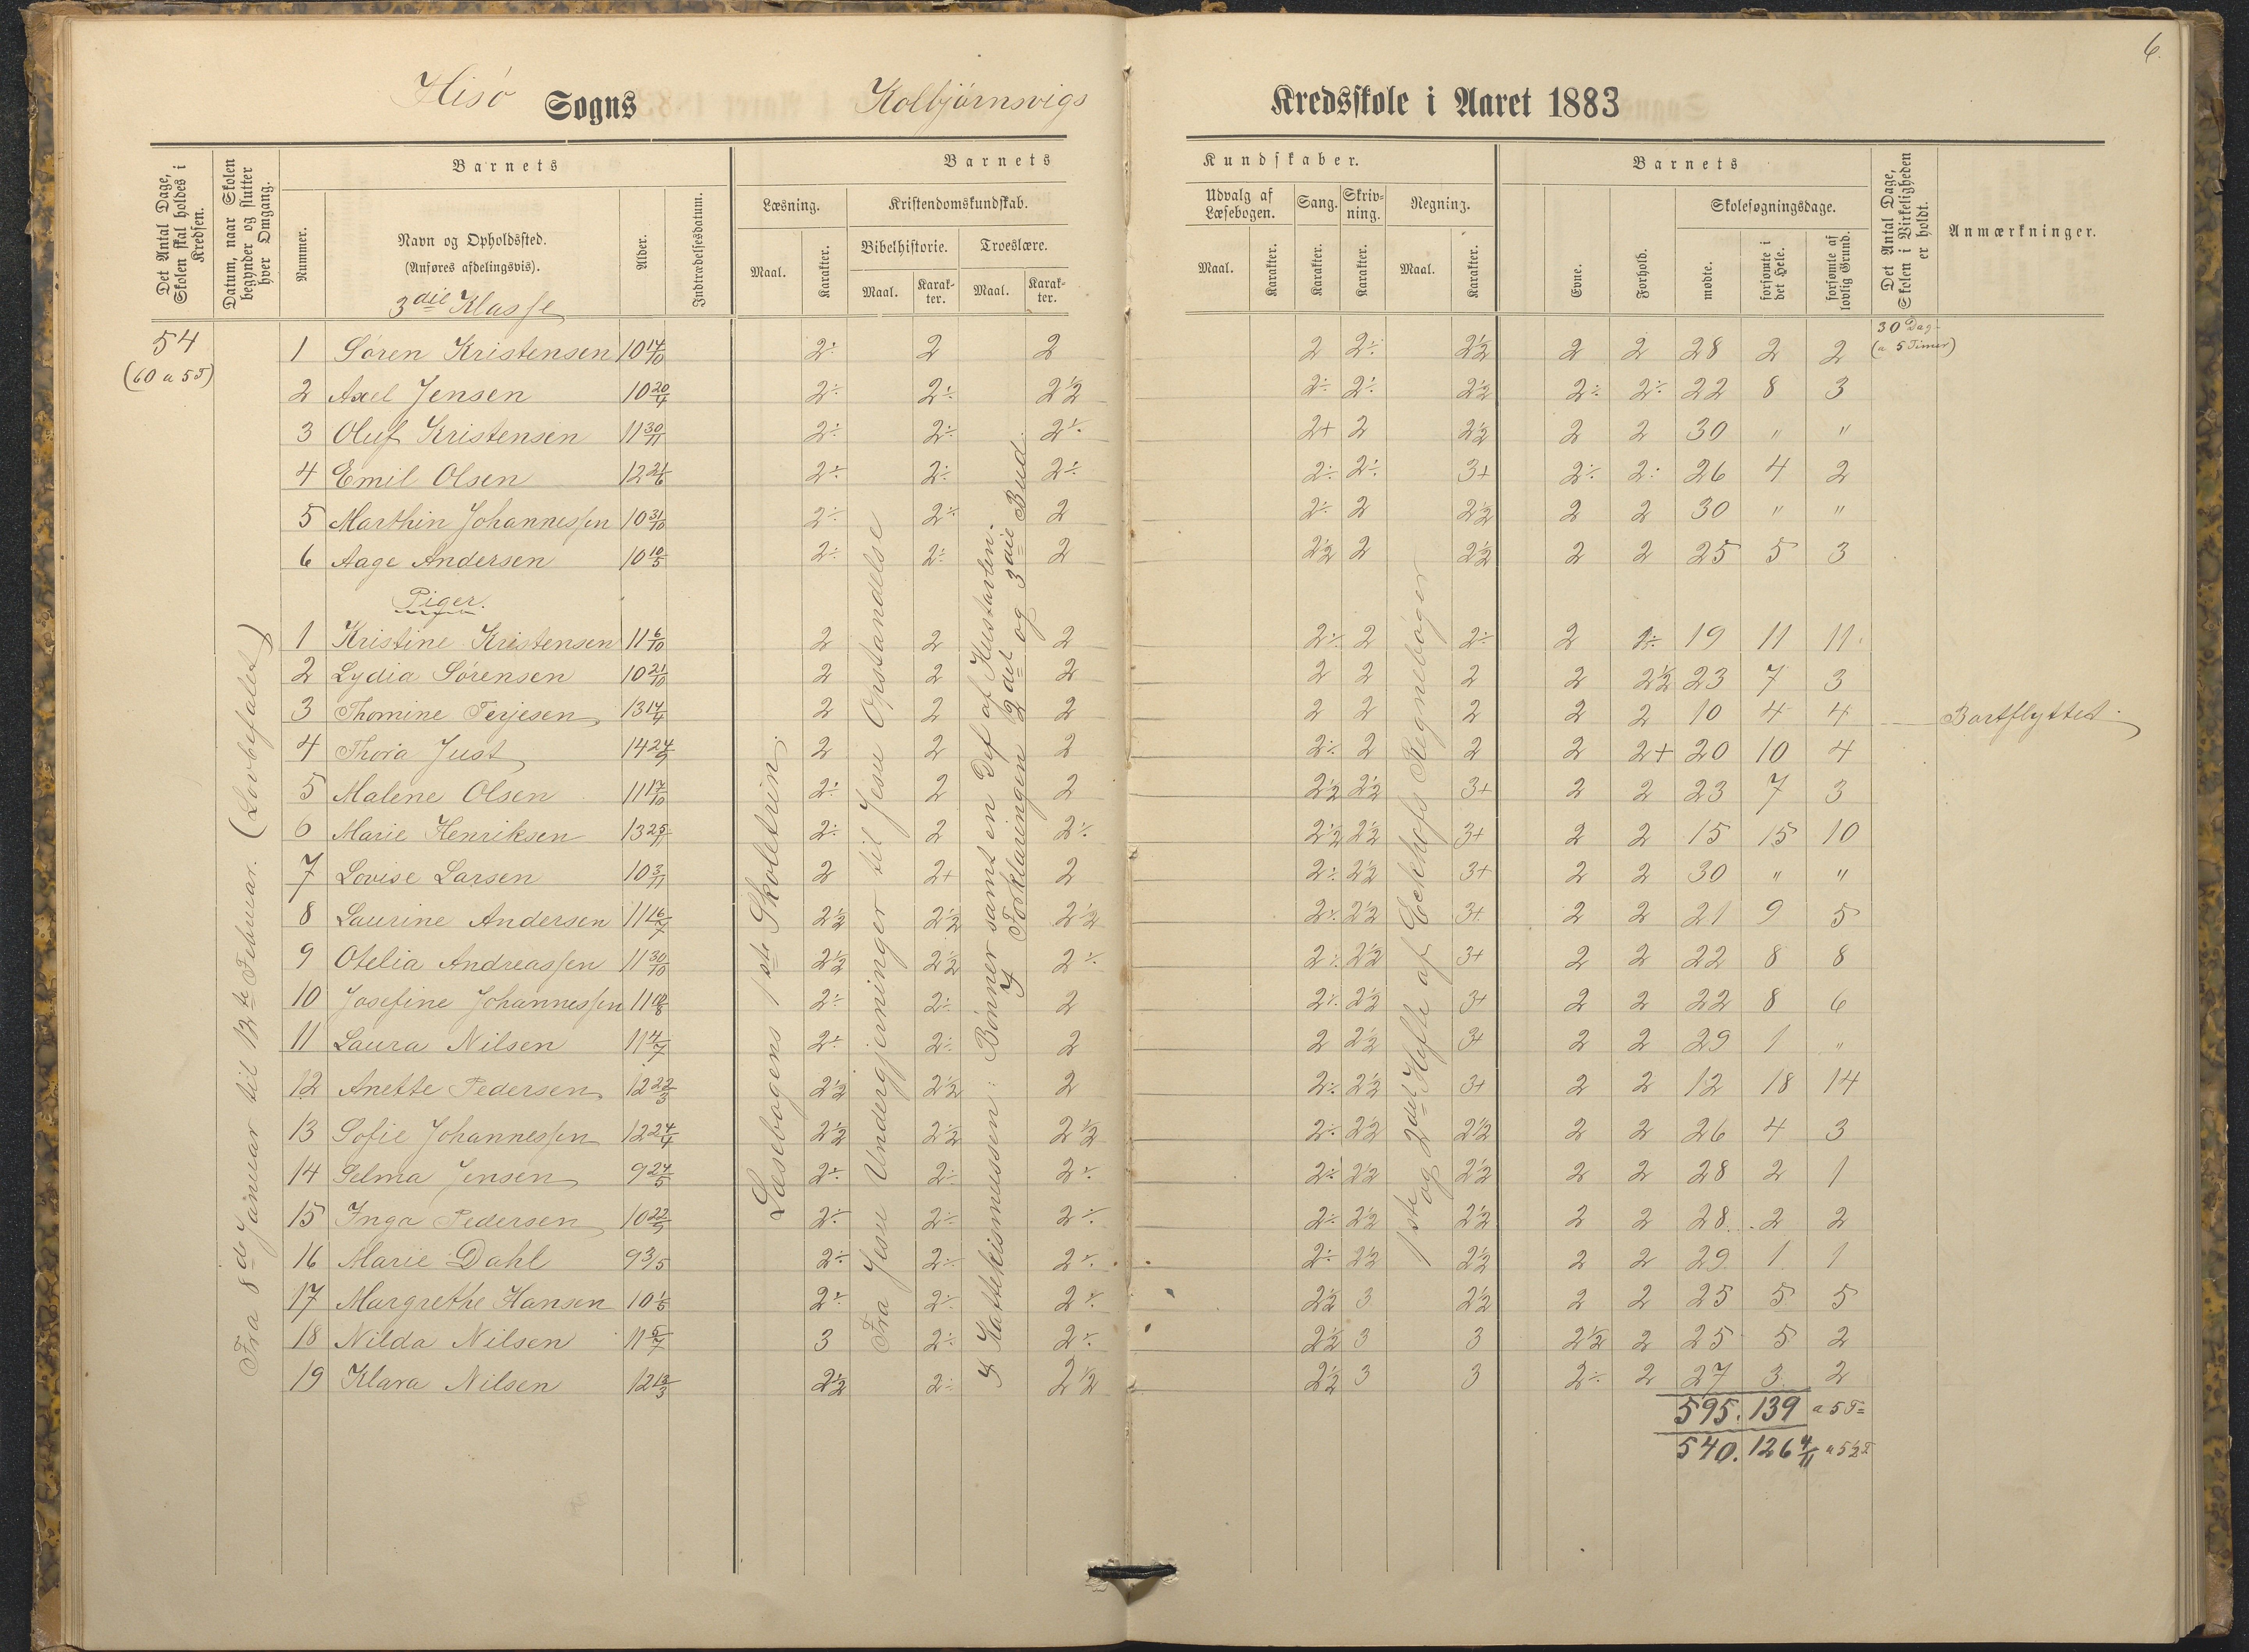 6.
Hisö Sogns Kolbjörnsvigs Kredsskole i Aaret 1883
Det Antal Dage, Skolen skal holdes i Kredsen.
Datum, naar Skolen begynder og slutter hver Omgang.
Barnets
Nummer.
Navn og Opholdssted.
(Anføres afdelingsvis).
3die Klasse
Alder.
Indtrædelsesdatum.
Barnets Kundskaber.
Læsning.
Maal. Karakter.
Kristendomskundskab.
Bibelhistorie. Troeslære.
Maal. Karakter. Maal. Karakter.
Udvalg af Læsebogen.
Maal. Karakter.
Sang. Karakter.
Skrivning. Karakter.
Regning.
Maal. Karakter.
Barnets
Evne. Forhold.
Skolesøgningsdage.
mødte. forsømte i det Hele. forsømte af lovlig Grund.
Det Antal Dage, Skolen i Virkeligheden er holdt.
Anmærkninger.
54
(60 a 5T)
Fra 8de Januar til 12te Februar. (Lovbefalet)
30 Dag.
(a 5 Timer)
1 Sören Kristensen 10 14/10 2÷ 2 2 2 2÷ 2½ 2 2 28 2 2
2 Axel Jensen 10 20/4 2÷ 2÷ 2½ 2÷ 2÷ 2½ 2÷ 2÷ 22 8 3
3 Oluf Kristensen 11 30/11 2÷ 2÷ 2÷ 2+ 2 2½ 2 2 30 " "
4 Emil Olsen 12 21/6 2÷ 2÷ 2÷ 2÷ 2÷ 3+ 2÷ 2÷ 26 4 2
5 Marthin Johannessen 10 31/10 2÷ 2÷ 2 2÷ 2 2½ 2 2 30 " "
6 Aage Andersen 10 10/5 2÷ 2÷ 2 2½ 2 2½ 2 2 25 5 3
Piger.
1 Kristine Kristensen 11 6/10 2 2 2 2÷ 2 2÷ 2 2÷ 19 11 11
2 Lydia Sörensen 10 21/10 2 2 2 2 2 2 2 2½ 23 7 3
3 Thomine Terjesen 13 14/4 2 2 2 2 2 2 2 2 10 4 4 Bortflyttet.
4 Thora Just 14 24/9 2 2 2 2÷ 2 2 2 2+ 20 10 4
5 Malene Olsen 11 17/10 2÷ 2 2 2½ 2½ 3+ 2 2 23 7 3
6 Marie Henriksen 13 25/11 2÷ 2 2÷ 2½ 2½ 3+ 2 2 15 15 10
7 Lovise Larsen 10 3/11 2 2+ 2 2÷ 2½ 3+ 2 2 30 " "
8 Laurine Andersen 11 16/7 2½ 2½ 2½ 2÷ 2½ 3+ 2 2 21 9 5
9 Otelia Andreassen 11 30/10 2½ 2½ 2÷ 2÷ 2½ 3+ 2 2 22 8 8
10 Josefine Johannessen 11 18/8 2÷ 2÷ 2 2÷ 2½ 3+ 2 2 22 8 6
11 Laura Nilsen 11 4/7 2÷ 2÷ 2 2 2½ 3+ 2 2 29 1 "
12 Anette Pedersen 12 22/3 2½ 2½ 2 2÷ 2½ 3+ 2 2 12 18 14
13 Sofie Johannessen 12 24/4 2½ 2½ 2½ 2÷ 2½ 2½ 2 2 26 4 3
14 Selma Jensen 9 24/5 2÷ 2÷ 2÷ 2÷ 2½ 2½ 2 2 28 2 1
15 Inga Pedersen 10 22/9 2÷ 2÷ 2÷ 2÷ 2½ 2½ 2 2 28 2 2
16 Marie Dahl 9 3/5 2÷ 2÷ 2÷ 2÷ 2½ 2½ 2 2 29 1 1
17 Margrethe Hansen 10 1/5 2÷ 2÷ 2÷ 2½ 3 2½ 2 2 25 5 5
18 Nilda Nilsen 11 5/7 3 2÷ 2÷ 2½ 3 3 2½ 2 25 5 2
19 Klara Nilsen 12 13/3 2½ 2÷ 2½ 2½ 3 3 2÷ 2 27 3 2
595. 139 a 5 T=
540. 126 4/11 a 5½ T
Læsebogens 1ste Skoletrin.
Fra Jesu Undergjerninger til Jesu Opstandelse
I Kattekismussen: Bönner samt en Del af Hustavlen.
I Forklaringen 2det og 3die Bud.
1ste og 2det Hefte af Eckhofs Regnebøger